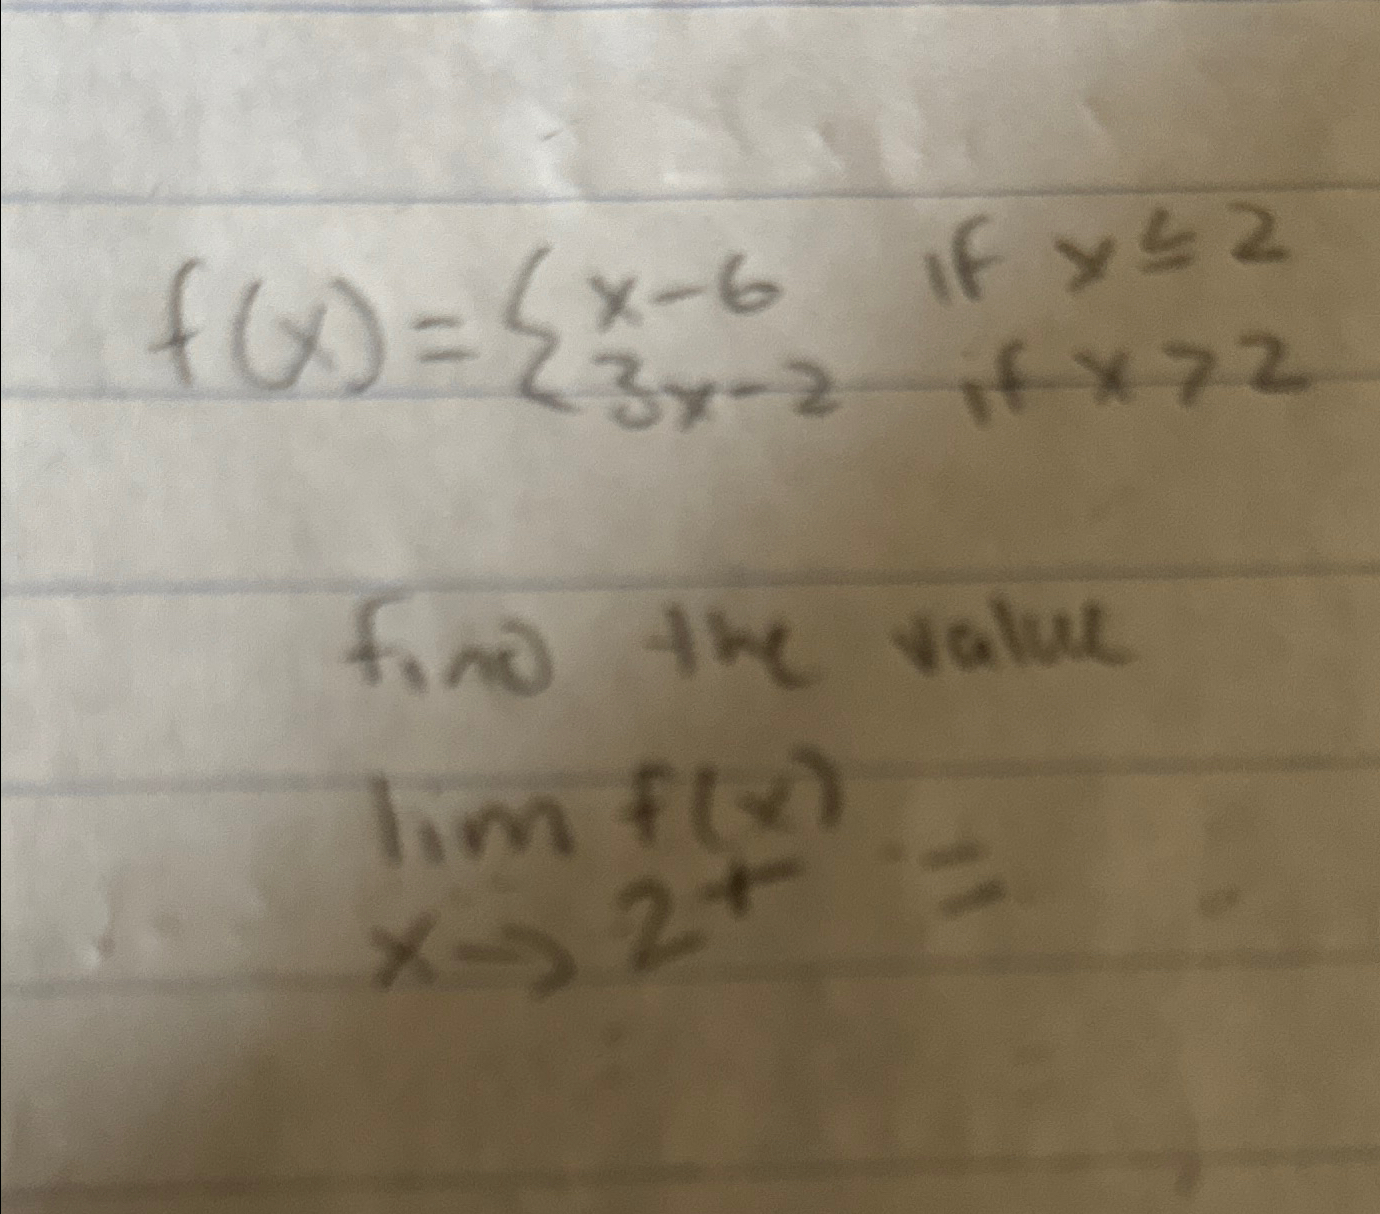 f(x) = { x - 6 if x ≤ 2
3x - 2 if x > 2
find the value
lim f(x) =
x → 2⁺